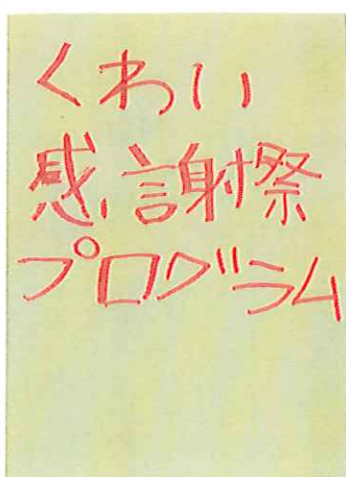 くわい
感謝祭
プログラム